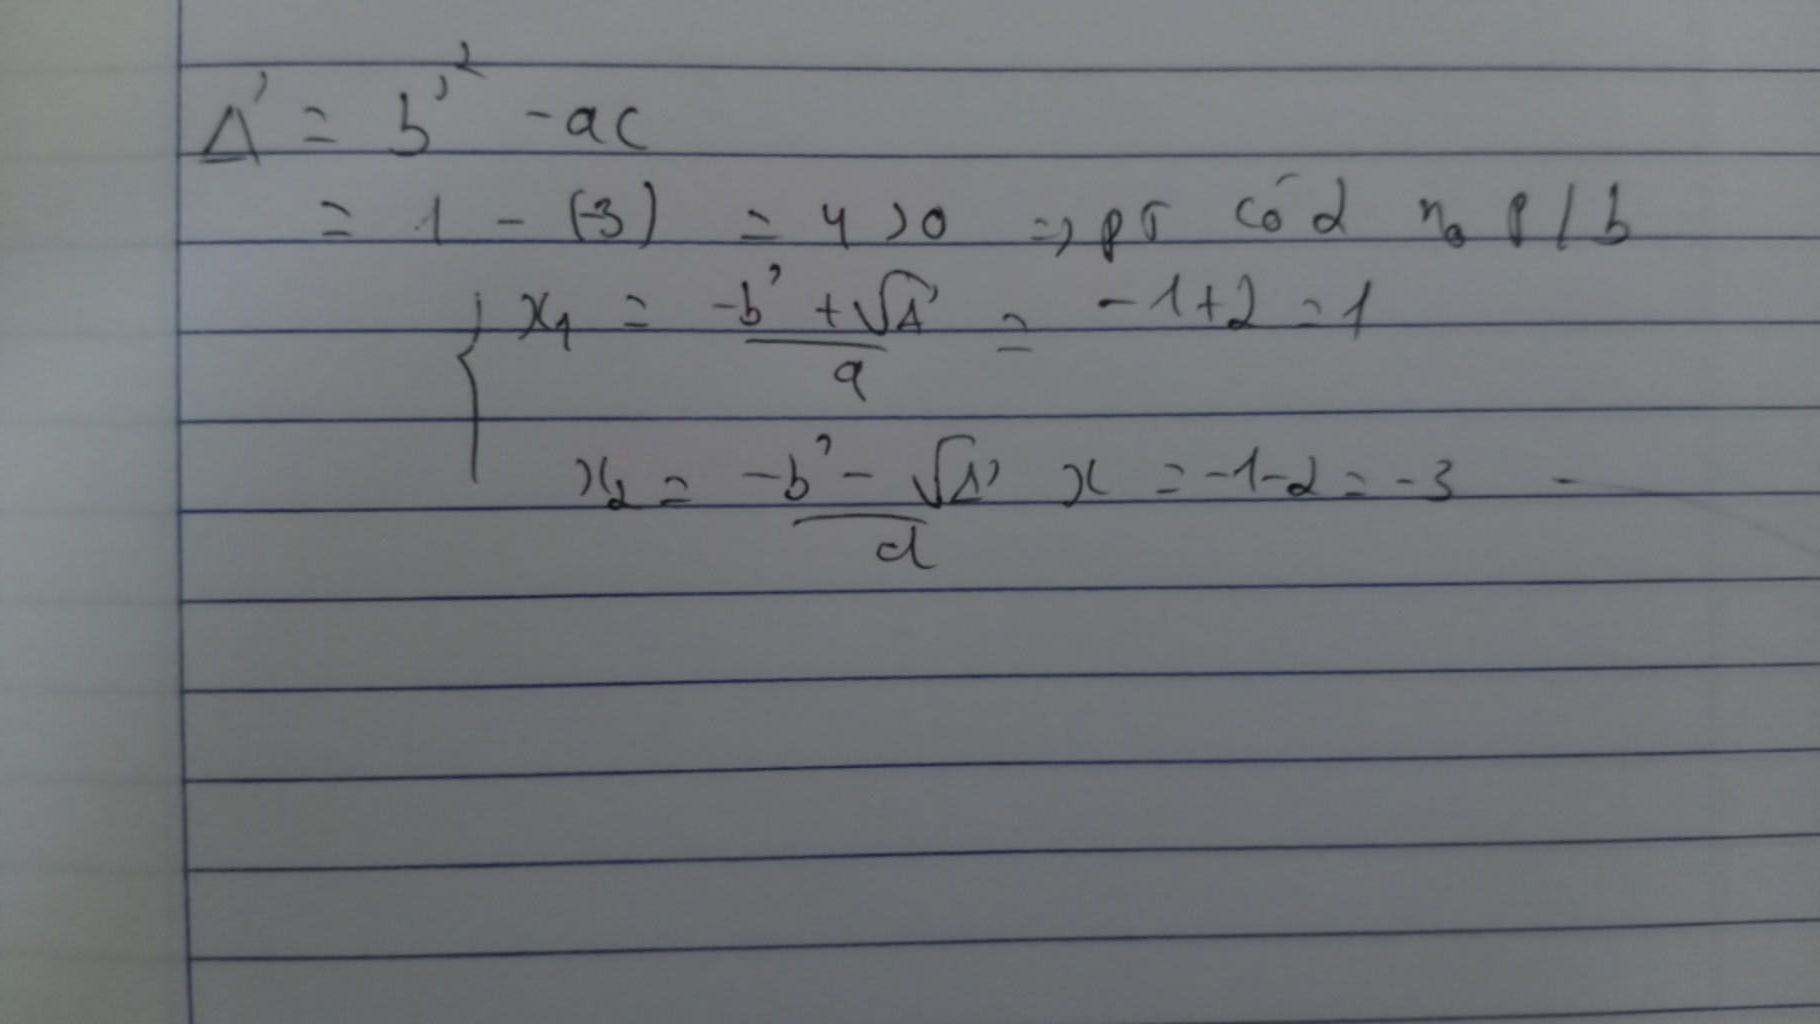 Δ' = b'² - ac
= 1 - (-3) = 4 > 0 => pt có 2 no p/b
x₁ = (-b' + √Δ')/a = -1+2 = 1
x₂ = (-b' - √Δ')/a x = -1-2 = -3 -